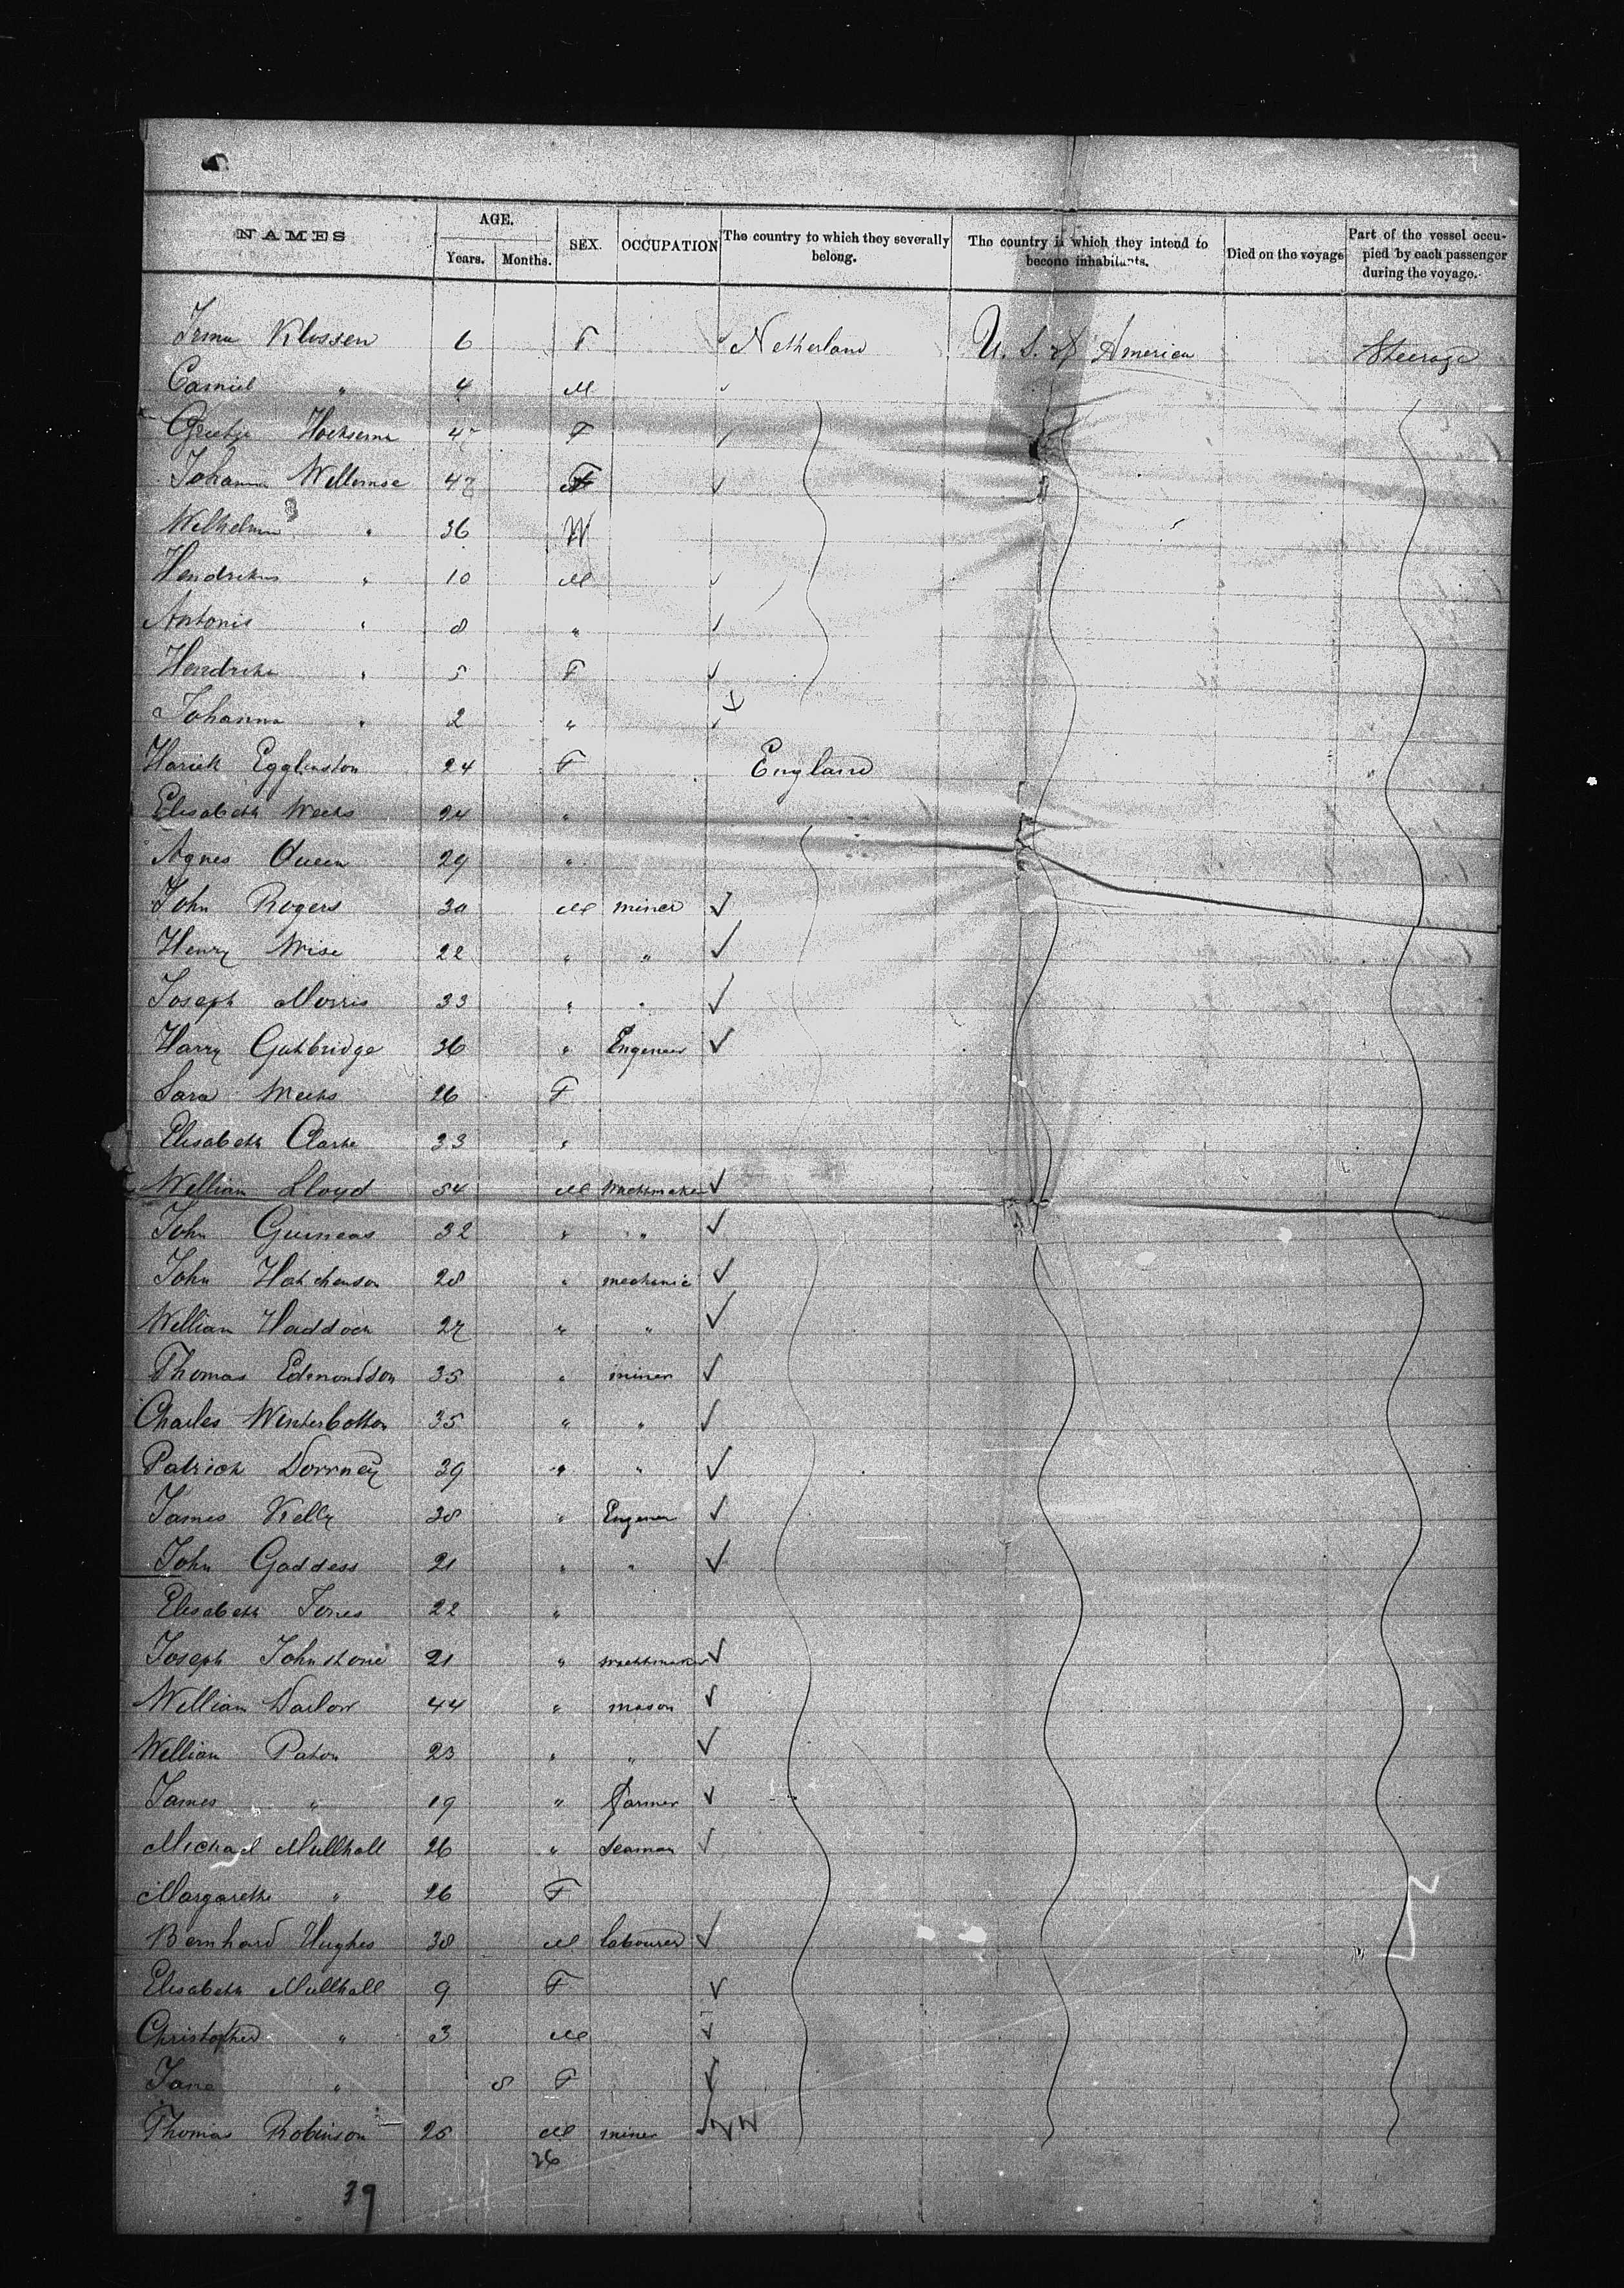 NAMES AGE. Years. Months. SEX. OCCUPATION The country to which they severally belong. The country in which they intend to become inhabitants. Died on the voyage Part of the vessel occupied by each passenger during the voyage.
Irma Klossen 6 F Netherland U. S. of America Steerage
Camiel " 4 M
Grietje Hoeksema 47 F
Johanna Willemse 47 F
Wilhelm " 36
Hendrikus " 10 M
Antonis " 8 "
Hendrika " 5 F
Johanna " 2 "
Hariett Egglenston 24 F England
Elisabeth Weeks 24 "
Agnes Queen 29 "
John Rogers 30 M miner
Henry Wise 22 " "
Joseph Morris 33 " "
Harry Gutbridge 36 " Engeneer
Sara Meeks 26 F
Elisabeth Clarke 23 "
William Lloyd 54 M
John Guineas 32 " "
John Hatchenson 28 " mechanic
William Haddock 27 " "
Thomas Edmondson 35 " miner
Charles Winterbotton 35 " "
Patrick Dorrney 39 " "
James Kelly 38 " Engener
John Gaddess 21 " "
Elisabeth Jones 22 "
Joseph Johnstone 21 "
William Darlow 44 " mason
William Paton 23 " "
James " 19 " farmer
Michael Mullhall 26 " Seaman
Margarethe " 26 F
Bernhard Hughes 38 M labourer
Elisabeth Mullhall 9 F
Christopher " 3 M
Jane " 8 F
Thomas Robinson 25 M miner
26
39